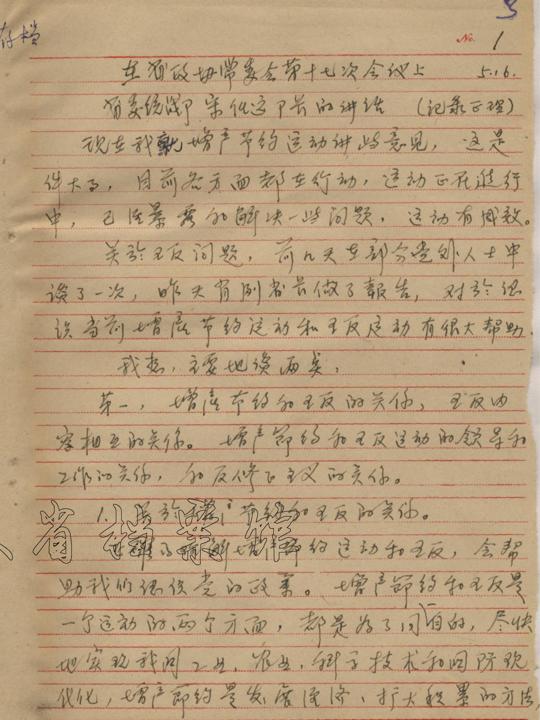 存档
5
No. 1
在省政协常委会第十七次会议上 5.16.
省委统战部宋任远部长的讲话 (记录正理)
现在我就增产节约运动讲些意见，这是
件大事，目前各方面都在行动，运动正在进行
中，已经暴露和解决一些问题，运动有成效。
关于五反问题，前几天在部分党外人士中
谈了一次，昨天省副省长做了报告，对于认
识当前增产节约运动和五反运动有很大帮助。
我想，主要地谈两类，
第一，增产节约和五反的关系，五反内
容相互的关系。增产节约和五反运动的领导和
工作的关系，和反修正主义的关系。
1. 关于增产节约和五反的关系。
了解增产节约运动和五反，会帮
助我们认识党的政策。增产节约和五反是
一个运动的两个方面，都是为了同一目的，尽快
地实现我国工业、农业、科学技术和国防现
代化，增产节约是发展经济、扩大积累的方法，
省档案馆